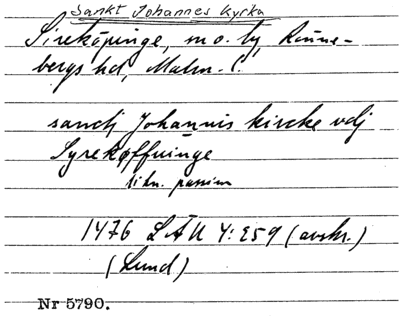 Sankt Johannes Kyrka
Sireköpinge, sn o. by, Rönne-
bergs hd, Malm. l.
sanctj Johannis kircke vdj
Syrekøffuinge
likn. passim
1476 LÄU 4:259 (avskr.)
(Lund)
Nr 5790.